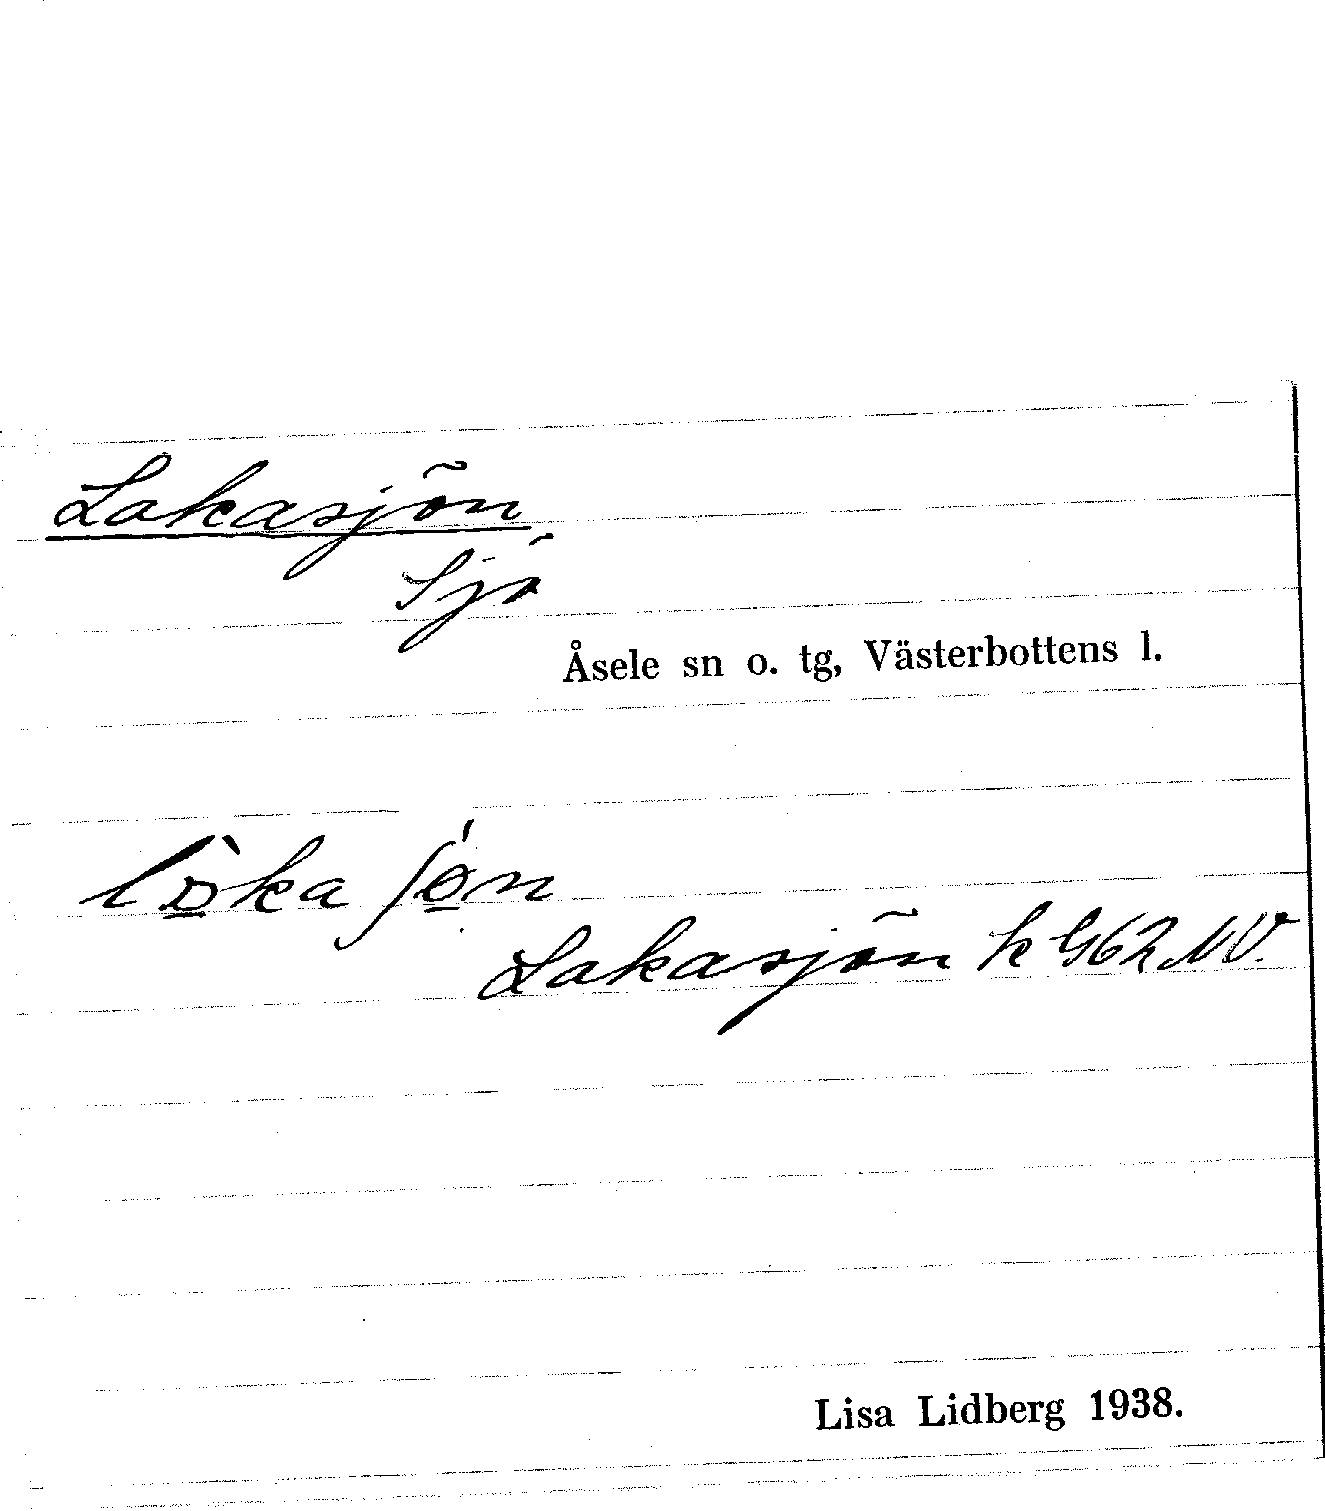 Lakasjön
Sjö
Åsele sn o. tg, Västerbottens l.
lò̱ka ʃǿ̱n
Lakasjön k G62 NV.
Lisa Lidberg 1938.